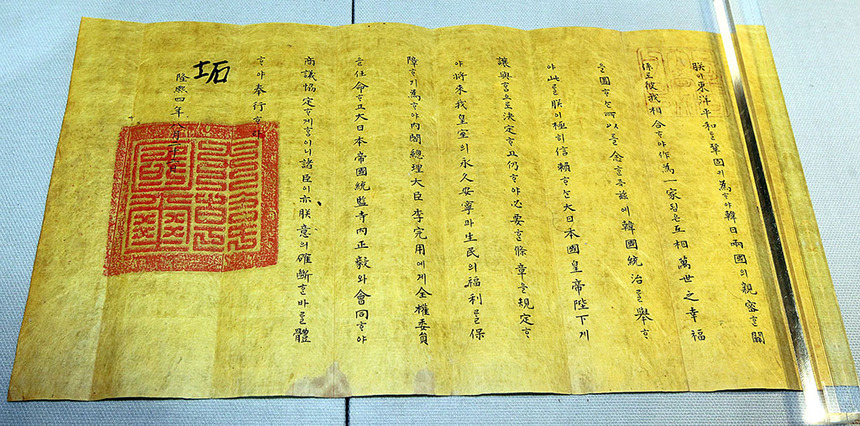 朕이東洋平和를鞏固히爲ᄒᆞ야韓日兩國의親密ᄒᆞᆫ關
係로彼我相合ᄒᆞ야作爲一家됨은互相萬世之幸福
을圖ᄒᆞᄂᆞᆫ所以를念ᄒᆞᆫ즉玆에韓國統治를擧ᄒᆞ
야此를朕이極히信賴ᄒᆞᄂᆞᆫ大日本國皇帝陛下게
讓與ᄒᆞᆷ으로決定ᄒᆞ고仍ᄒᆞ야必要ᄒᆞᆫ條章을規定ᄒᆞ
야將來我皇室의永久安寧과生民의福利를保
障ᄒᆞ기爲ᄒᆞ야內閣總理大臣李完用에게全權委員
을任命ᄒᆞ고大日本帝國統監寺內正毅와會同ᄒᆞ야
商議協定ᄒᆞ게ᄒᆞᆷ이니諸臣이亦朕意의確斷ᄒᆞᆫ바를體
ᄒᆞ야奉行ᄒᆞ라
隆熙四年
坧